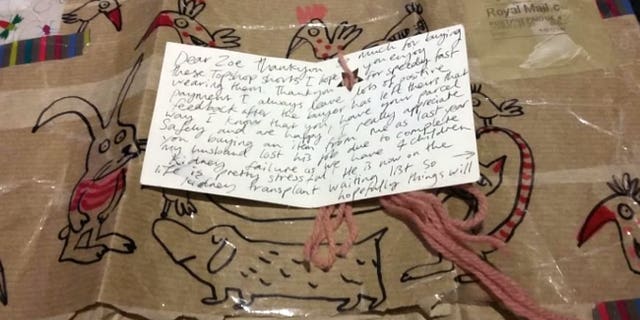 Royal Mail
Dear Zoe thankyou so much for buying
these Topshop shorts I hope you enjoy
wearing them. Thankyou for speedy fast
payment I always leave lots of positive
feedback after the buyer has left theirs that
way I know that you have your parcel
safely and are happy. I really appreciate
you buying an item from me as last year
my husband lost his job due to complete
kidney failure as we have 4 children
life is pretty stressful. He is now on the
kidney transplant waiting list so
hopefully things will →